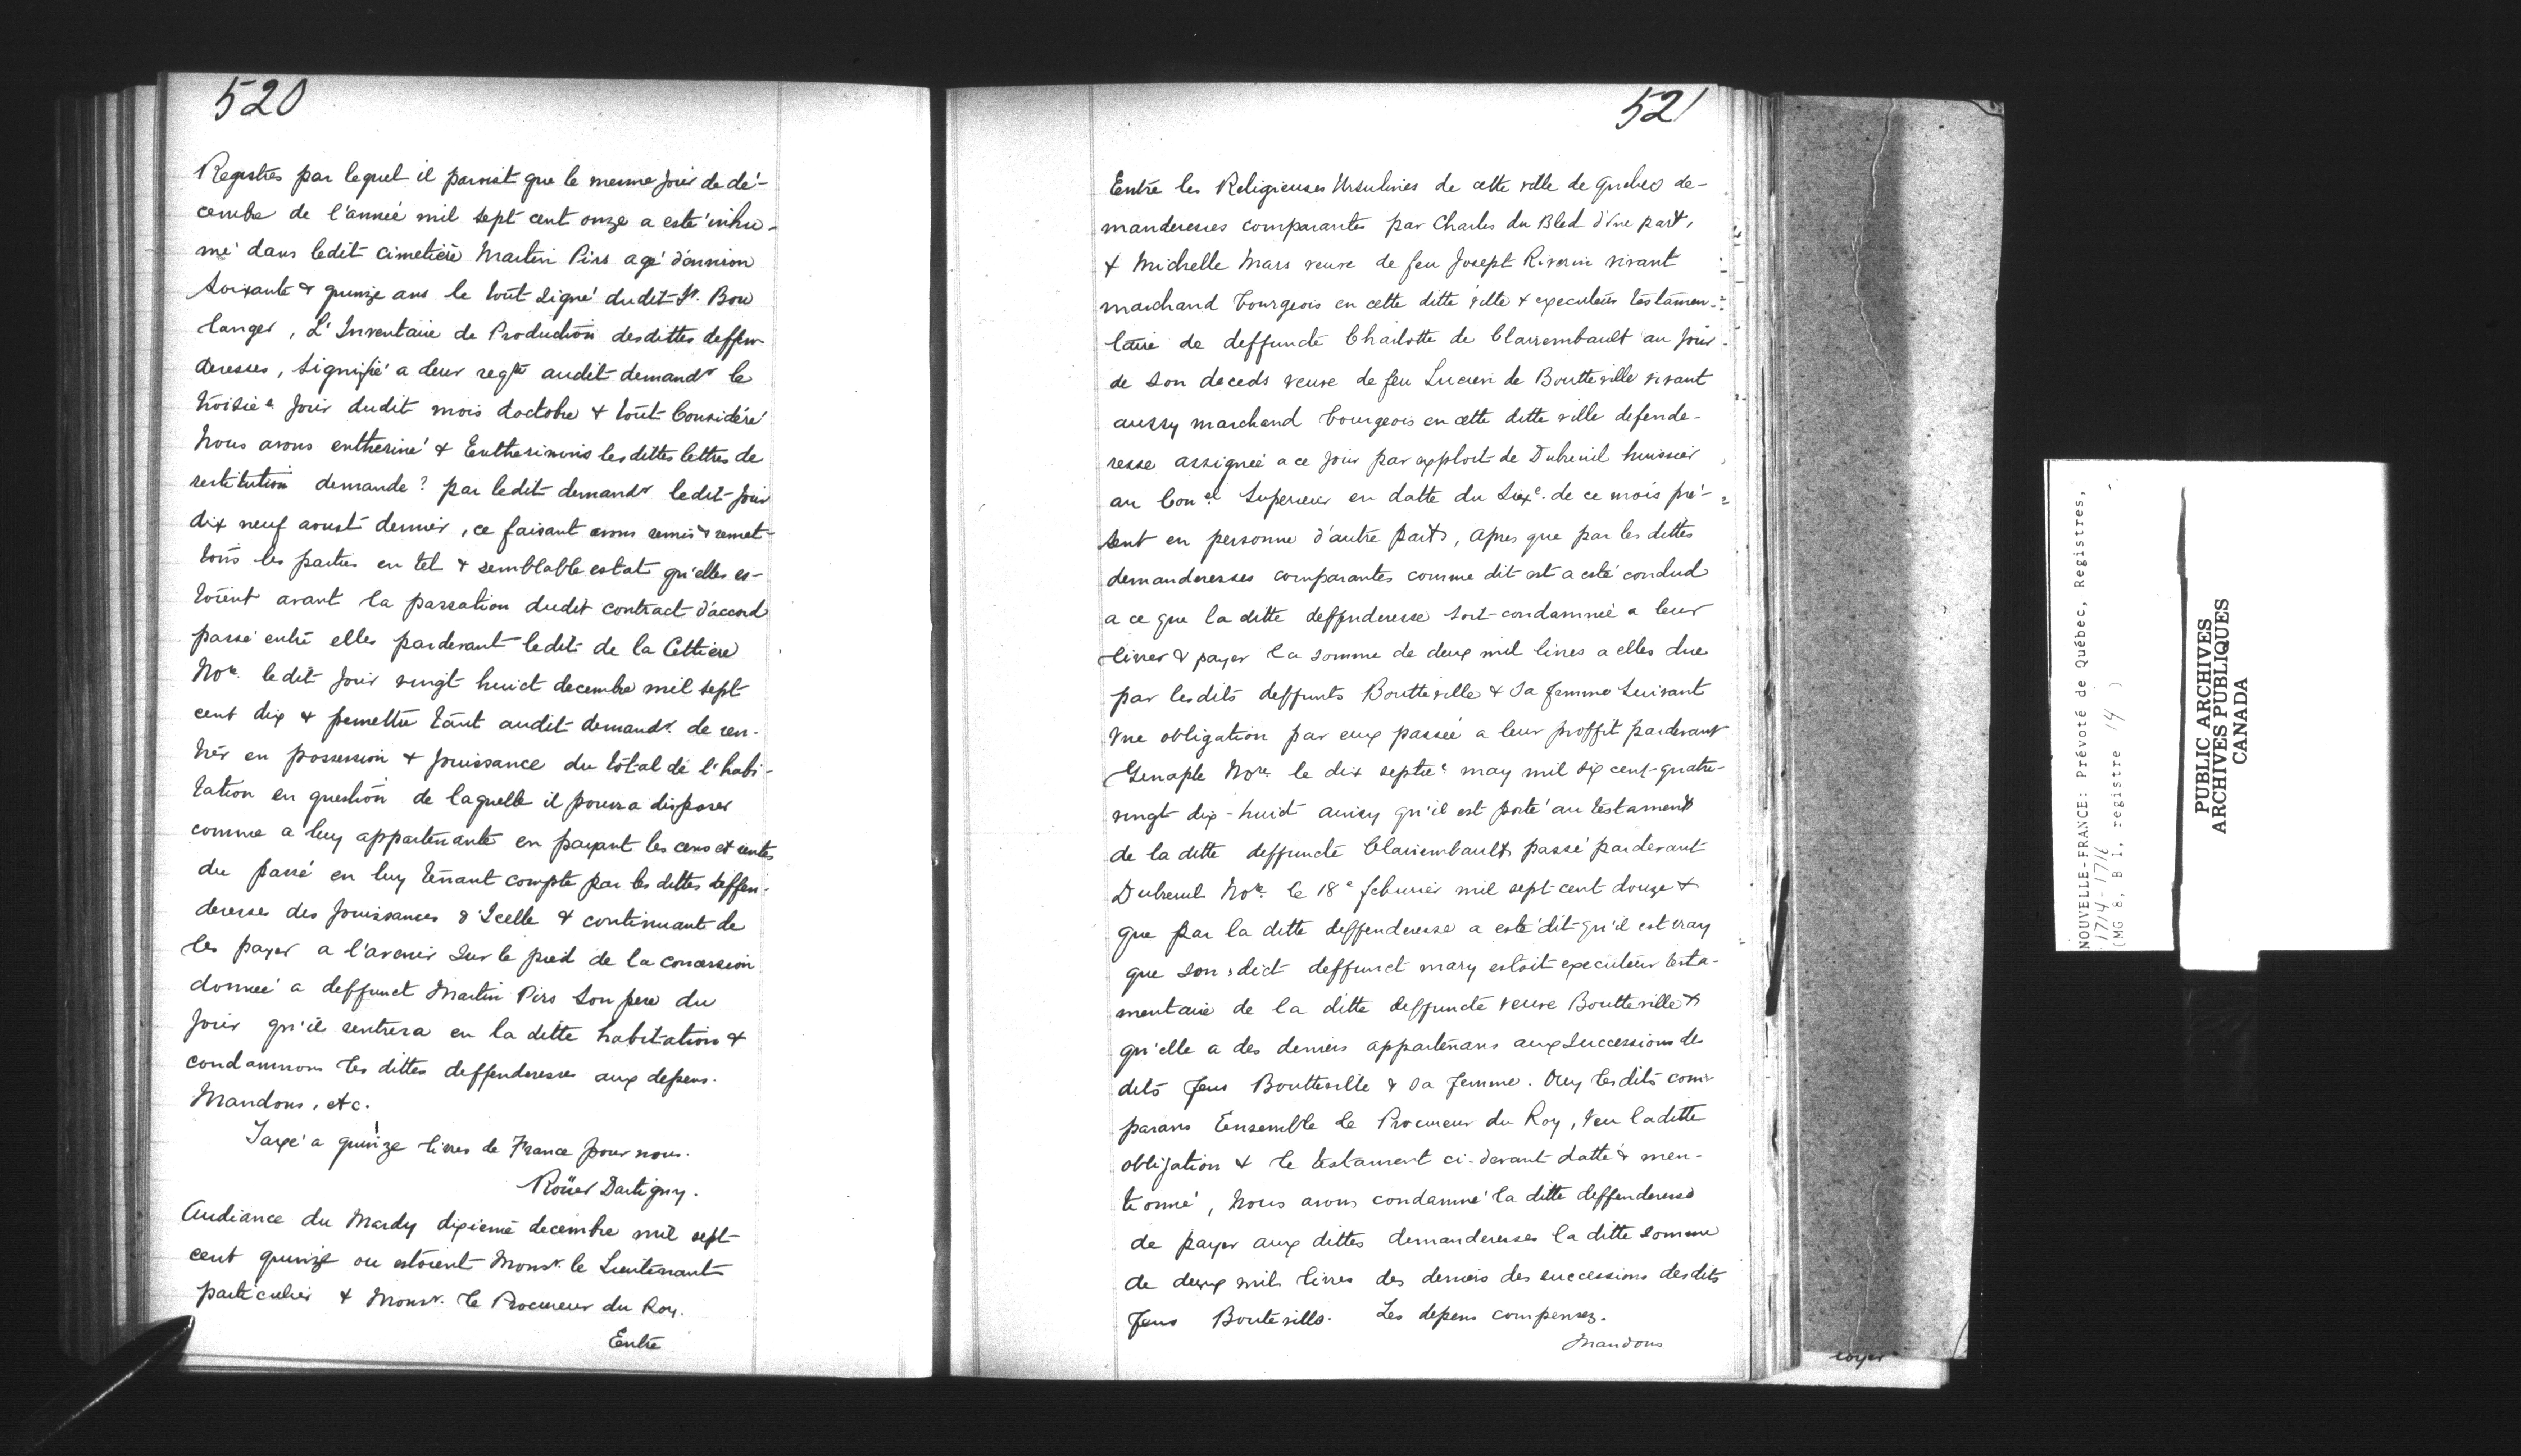 520
Registres par lequel il paroist que le mesme jour de dé-
cembre de l'année mil sept cent onze a esté inhu-
mé dans ledit cimetiere Martin Pirs agé d'environ
soixante & quinze ans le tout signé dudit Sr. Bou
langer, L'Inventaire de Production desdittes deffen
deresses, signifié a leur reqte audit demandr le
troisiee. jour dudit mois doctobre & tout Considéré
Nous avons entheriné & Entherinons les dittes lettres de
restitution demande? par ledit demandr ledit jour
dix neuf aoust dernier, ce faisant avons remis & remet-
tons les parties en tel & semblable estat qu'elles es-
toient avant la passation dudit contract d'accord
passé entre elles pardevant ledit de la Cettiere
Nore. ledit jour vingt huict decembre mil sept
cent dix & permettre tant audit demandr. de ren-
trer en possession & jouissance du total de l'habi-
tation en question de laquelle il pourra disposer
comme a luy appartenante en payant les cens et rentes
du passé en luy tenant compte par les dittes deffen-
deresses des jouissances d'Icelle & continuant de
les payer a l'avenir sur le pied de la concession
donnée a deffunct Martin Pirs son pere du
jour qu'il rentrera en la ditte habitation &
condamnons les dittes deffenderesses aux depens.
Mandons, etc.
Taxé a quinze livres de France pour nous.
Roüer Dartigny.
Audiance du Mardy dixieme decembre mil sept-
cent quinze ou estoient Monsr. le Lieutenant
particulier & Monsr. le Procureur du Roy.
Entre
521
Entre les Religieuses Ursulines de cette ville de Quebec de-
manderesses comparantes par Charles du Bled d'vne part,
& Michelle Mars veuve de feu Josept Riverin vivant
marchand bourgeois en cette ditte ville & executeur testamen-
taire de deffuncte Charlotte de Clairembault au jour
de son deceds veuve de feu Lucien de Boutteville vivant
aussy marchand bourgeois en cette ditte ville defende-
resse assignée a ce jour par exploit de Dubreuil huissier
au Conel Superieur en datte du Sixe. de ce mois pré-
sent en personne d'autre part, apres que par les dittes
demanderesses comparantes comme dit est a esté conclud
a ce que la ditte deffenderesse soit condamnée a leur
livrer & payer la somme de deux mil livres a elles due
par lesdits deffunts Boutteville & sa femme suivant
vne obligation par eux passée a leur proffit pardevant
Genaple Nore. le dix septiee may mil six cent quatre-
vingt dix-huict ainsy qu'il est porté au testament
de la ditte deffuncte Clairembault passé pardevant
Dubreuil Nore. le 18e febvrier mil sept cent douze &
que par la ditte deffenderesse a esté dit qu'il est vray
que son dict deffunct mary estoit executeur testa-
mentaire de la ditte deffuncte veuve Boutteville &
qu'elle a des deniers appartenans aux successions des
dits feus Boutteville & sa femme. Ouy lesdits com-
parans Ensemble le Procureur du Roy, veu laditte
obligation & le testament ci-devant datté & men-
tionné, Nous avons condamné la ditte deffenderesse
de payer aux dittes demanderesses la ditte somme
de deux mil livres des deniers des successions desdits
feus Bouteville. Les depens compensez.
Mandons
NOUVELLE-FRANCE: Prévoté de Québec, Registres,
1714-1716
(MG 8, B 1, registre 14 )
PUBLIC ARCHIVES
ARCHIVES PUBLIQUES
CANADA